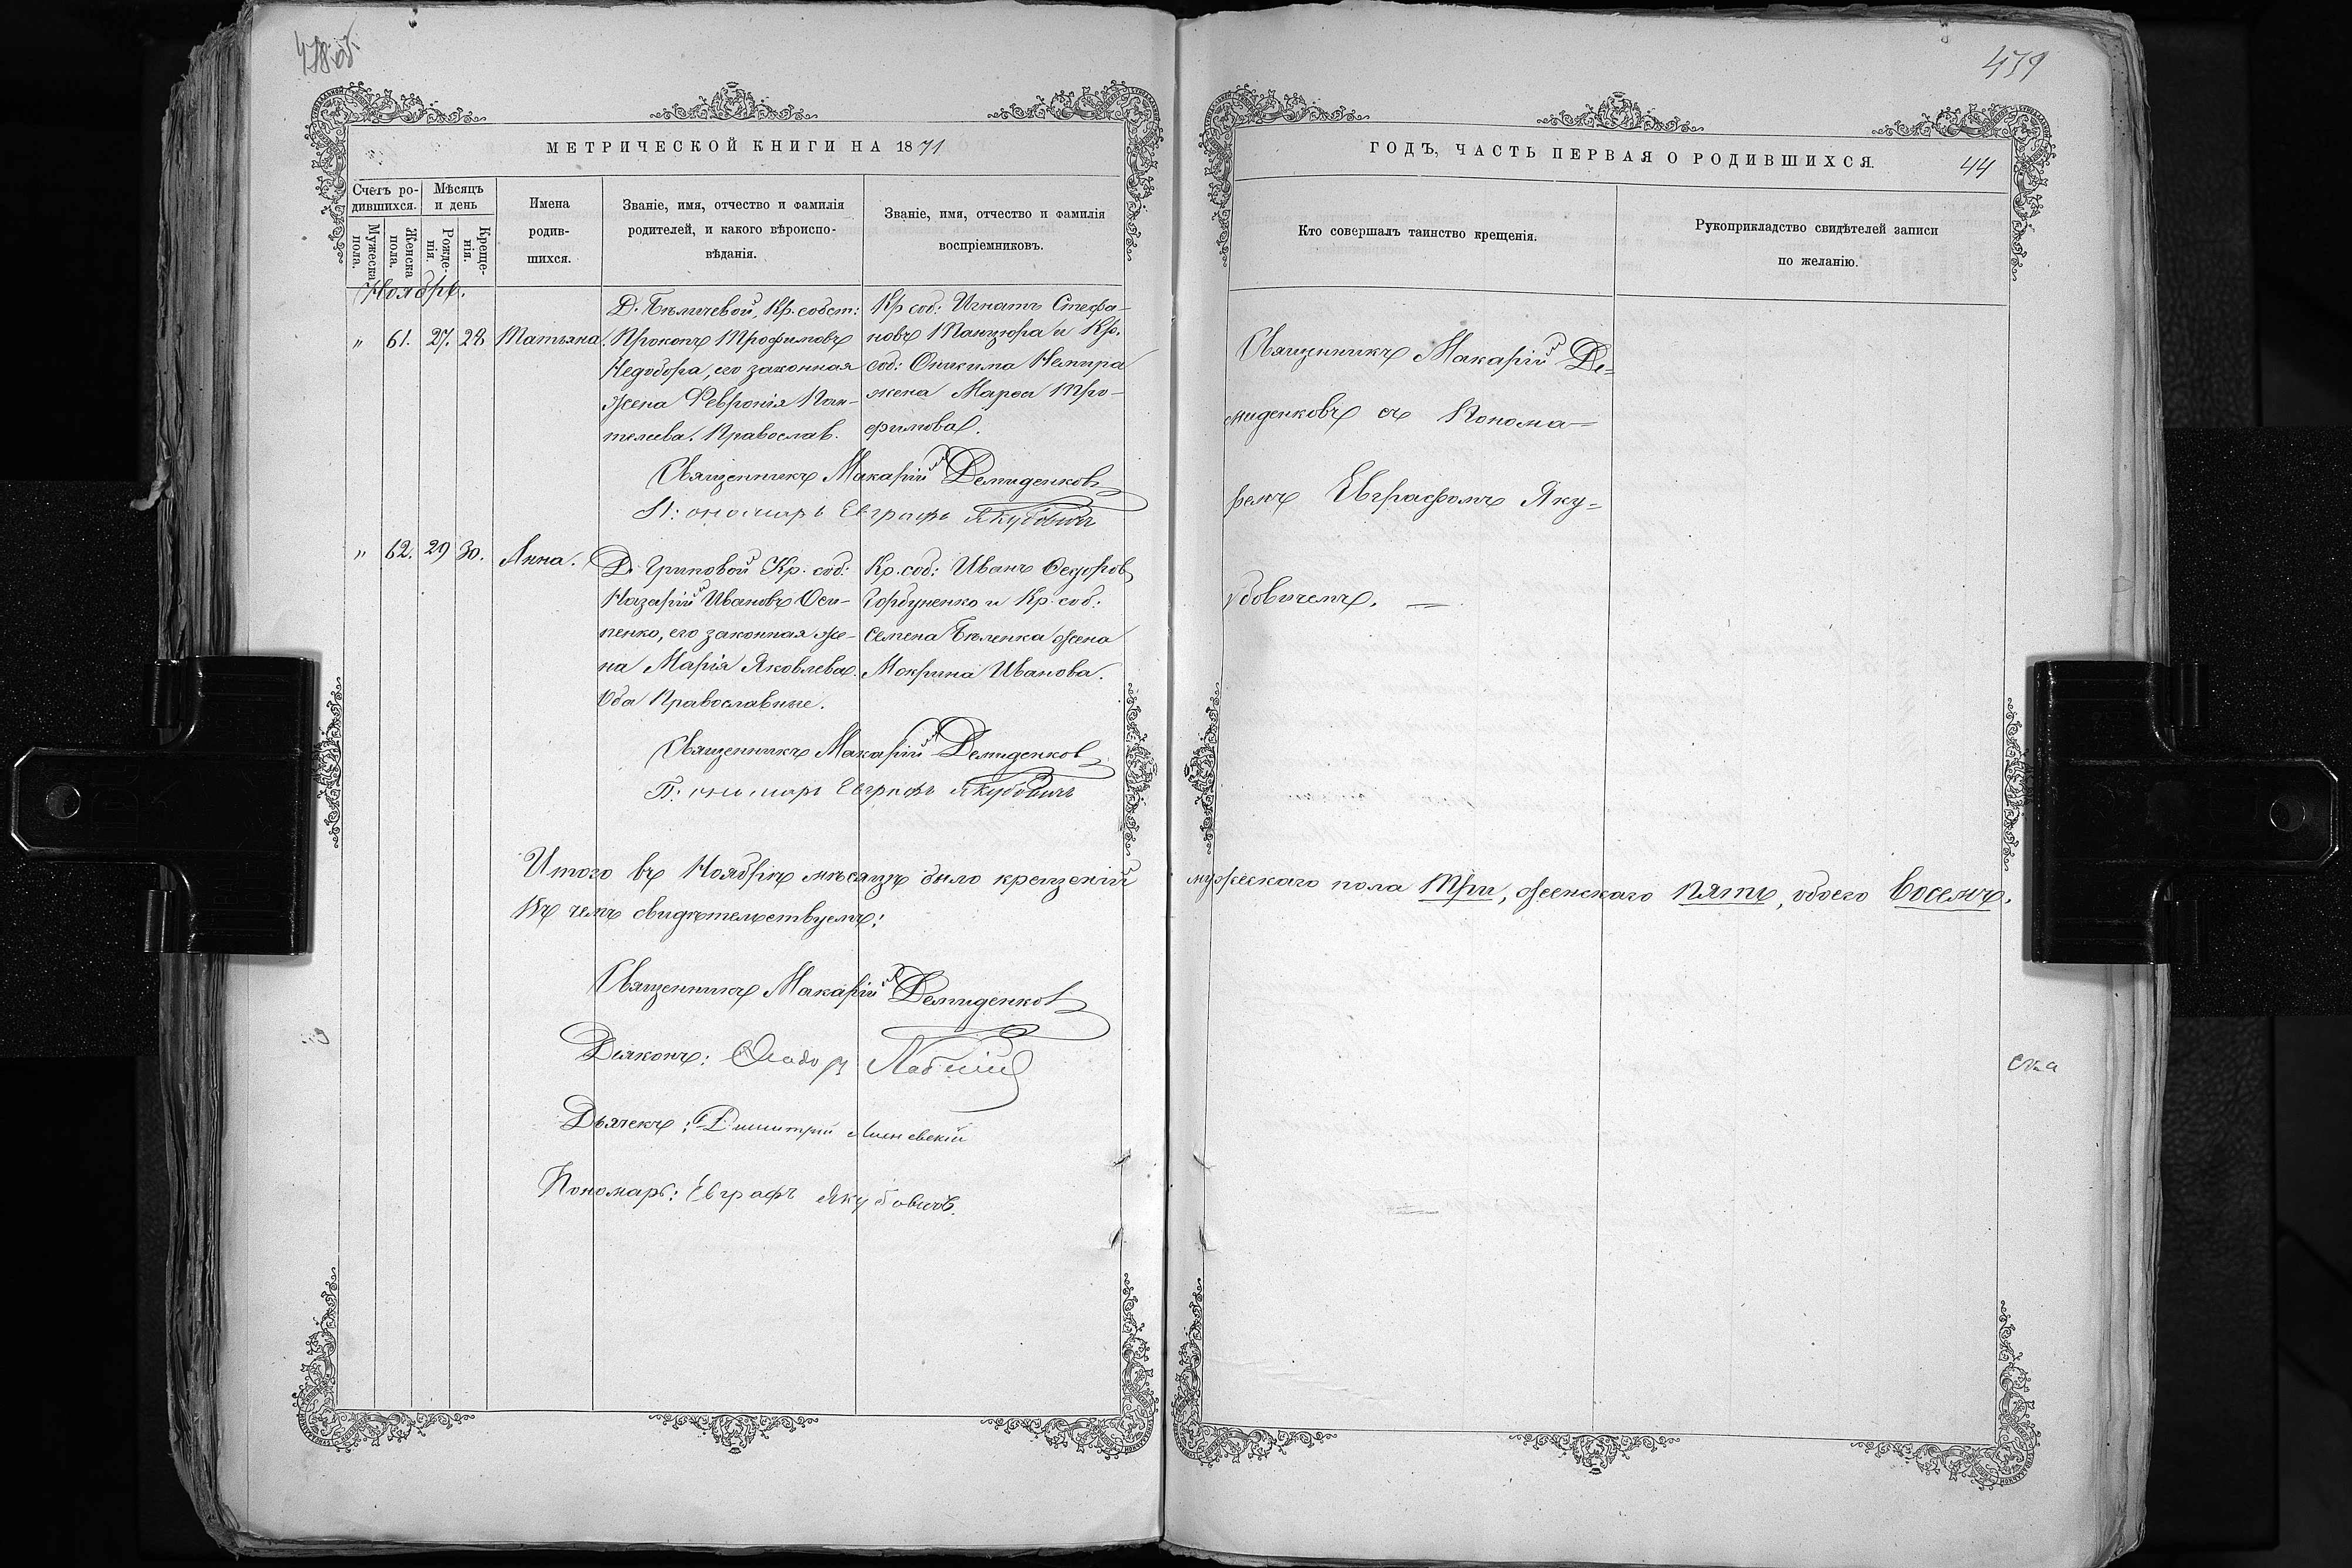 478об.
МЕТРИЧЕСКОЙ КНИГИ НА 1871
Счетъ родившихся.
Мѣсяцъ и день
Мужеска пола.
Женска пола.
Рожденія.
Крещенія.
Имена родившихся.
Званіе, имя, отчество и фамилія родителей, и какого вѣроисповѣданія.
Званіе, имя, отчество и фамилія воспріемниковъ.
Ноябрь.
" 61. 27. 28 Татьяна.
Д. Бѣличевой, Кр. собст:
Прокопъ Трофимовъ
Недобора, его законная
жена Февронія Пан-
телеева. Православ.
Кр соб: Игнатъ Стефа-
новъ Танцюра и Кр.
соб: Оникима Немира
жена Марѳа Тро-
фимова.
Священникъ Макарій Демиденковъ
Пономарь Евграфъ Якубовичъ
" 62. 29 30. Анна.
Д. Гриповой Кр. соб:
Назарій Ивановъ Оси-
пенко, его законная же-
на Марія Яковлева.
Оба Православные.
Кр. соб: Иванъ Ѳедоров
Горбуненко и Кр. соб:
Семена Бѣленка жена
Мокрина Иванова.
Священникъ Макарій Демиденковъ
Пономарь Евграфъ Якубовичъ
Итого въ Ноябрѣ мѣсяцѣ было крещеній
Въ чемъ свидѣтельствуемъ:
Священникъ Макарій Демиденковъ
Діаконъ:
Дьячекъ: Димитрій
Пономарь: Евграфъ Якубовичъ.
479
ГОДЪ, ЧАСТЬ ПЕРВАЯ О РОДИВШИХСЯ.
44
Кто совершалъ таинство крещенія.
Рукоприкладство свидѣтелей записи по желанію.
Священникъ Макарій Де-
миденковъ съ Понома-
ремъ Евграфомъ Яку-
бовичемъ.
мужескаго пола три, женскаго пять, обоего восемь.